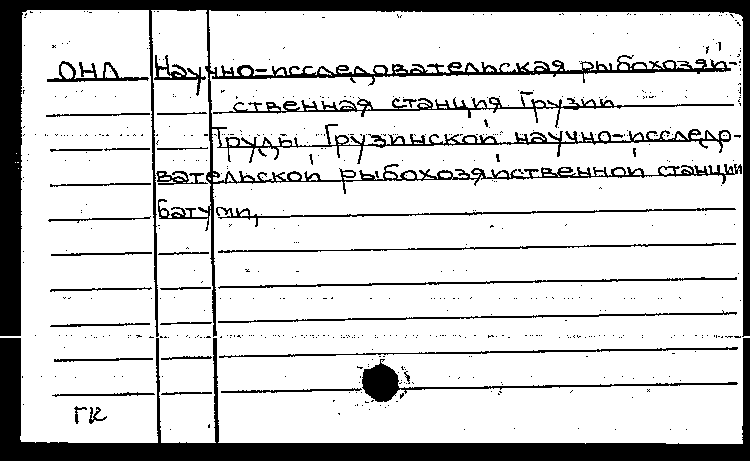 ОНЛ Научно-исследовательская рыбохозяй-
ственная станция Грузии.
Труды Грузинской научно-исследо-
вательской рыбохозяйственной станции
Батуми,
ГК